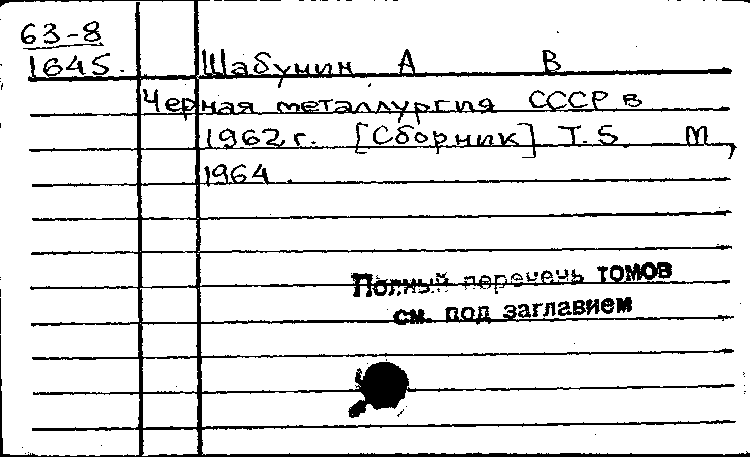 63-8
1645. Шабунин А В
Черная металлургия СССР в
1962 г. [Сборник] Т. 5 М,
1964.
Полный перечень томов
см. под заглавием